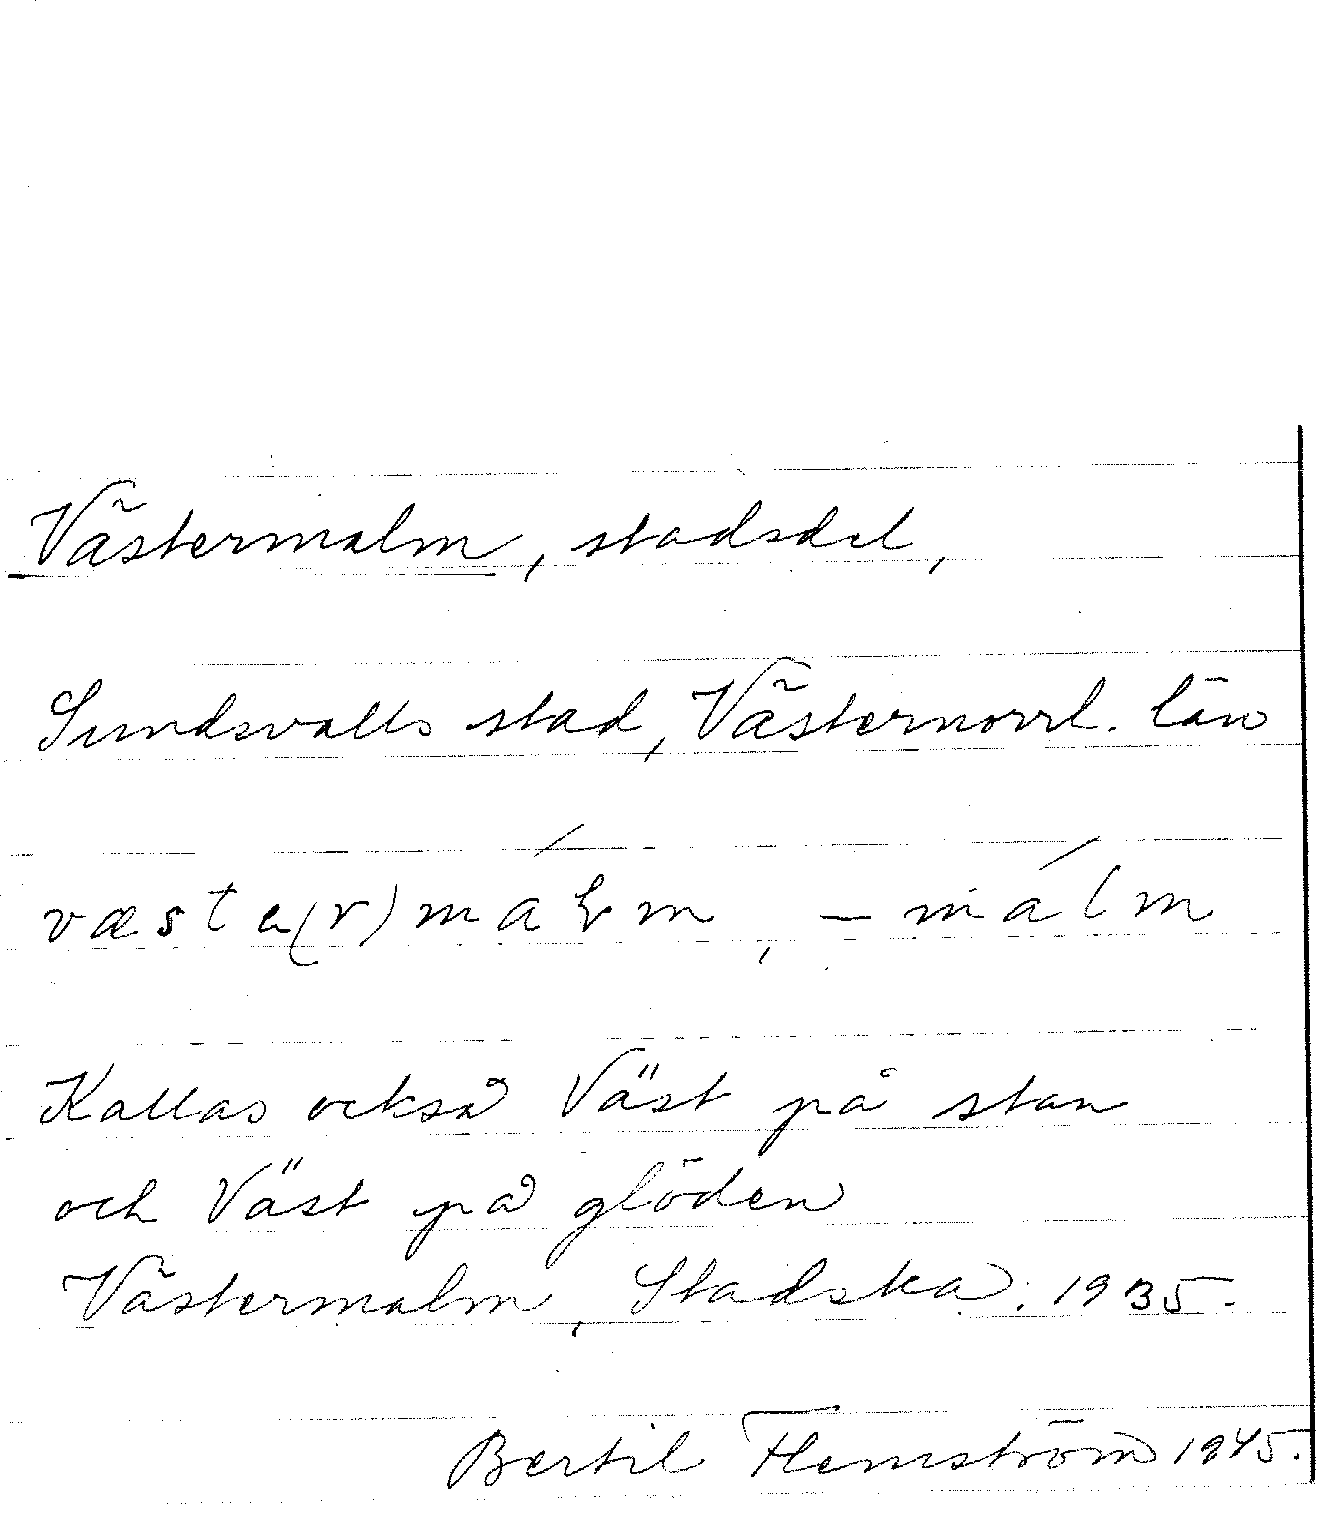 Västermalm, stadsdel,
Sundsvalls stad, Västernorrl. län
væsta(r)máɽm, - málm
Kallas också Väst på stan
och Väst på glöden
Västermalm, Stadska. 1935.
Bertil Flemström 1945.